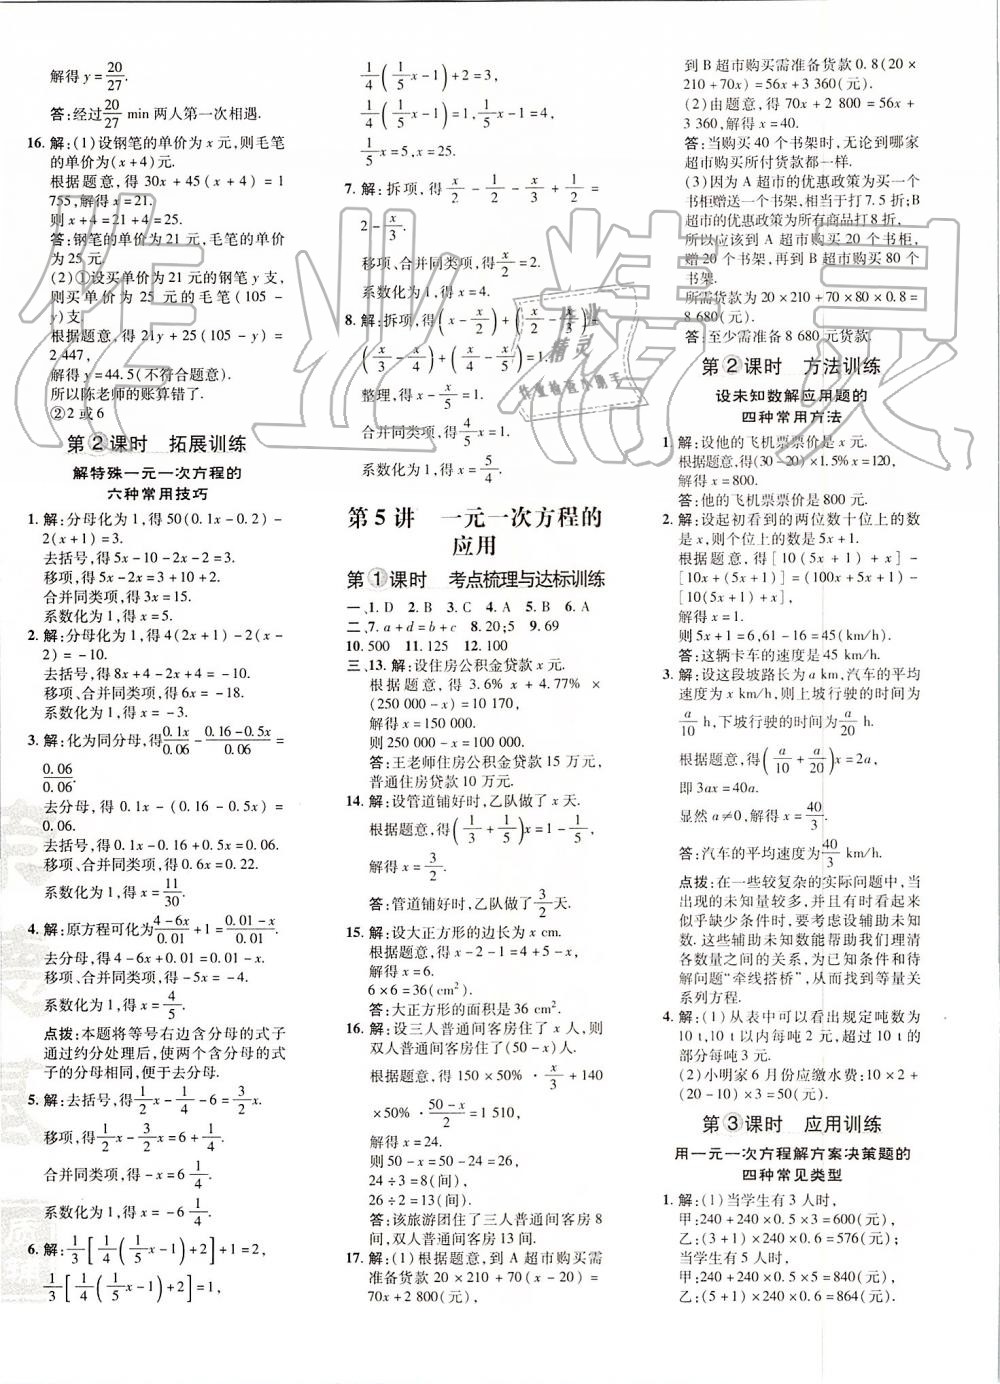 解得 y=20/27.
答:经过20/27 min 两人第一次相遇.
16. 解:(1)设钢笔的单价为 x 元,则毛笔
的单价为(x+4)元.
根据题意,得 30x+45(x+4)=1
755,解得 x=21.
则 x+4=21+4=25.
答:钢笔的单价为 21 元,毛笔的单价
为 25 元
(2)①设买单价为 21 元的钢笔 y 支,
则买单价为 25 元的毛笔(105-
y)支
根据题意,得 21y+25(105-y)=
2 447,
解得 y=44.5(不符合题意).
所以陈老师的账算错了.
②2 或 6
第2课时 拓展训练
解特殊一元一次方程的
六种常用技巧
1. 解:分母化为 1,得 50(0.1x-0.2)-
2(x+1)=3.
去括号,得 5x-10-2x-2=3.
移项,得 5x-2x=3+10+2.
合并同类项,得 3x=15.
系数化为 1,得 x=5.
2. 解:分母化为 1,得 4(2x+1)-2(x-
2)=-10.
去括号,得 8x+4-2x+4=-10.
移项、合并同类项,得 6x=-18.
系数化为 1,得 x=-3.
3. 解:化为同分母,得0.1x/0.06-0.16-0.5x/0.06=
0.06/0.06.
去分母,得 0.1x-(0.16-0.5x)=
0.06.
去括号,得 0.1x-0.16+0.5x=0.06.
移项、合并同类项,得 0.6x=0.22.
系数化为 1,得 x=11/30.
4. 解:原方程可化为4-6x/0.01+1=0.01-x/0.01.
去分母,得 4-6x+0.01=0.01-x.
移项、合并同类项,得-5x=-4.
系数化为 1,得 x=4/5.
点拨:本题将等号右边含分母的式子
通过约分处理后,使两个含分母的式
子的分母相同,便于去分母.
5. 解:去括号,得1/2x-1/4-6=3/2x.
移项,得1/2x-3/2x=6+1/4.
合并同类项,得-x=6 1/4.
系数化为 1,得 x=-6 1/4.
6. 解:1/3[1/4(1/5x-1)+2]+1=2,
1/3[1/4(1/5x-1)+2]=1,
1/4(1/5x-1)+2=3,
1/4(1/5x-1)=1,
1/5x=5,x=25.
7. 解:拆项,得x/2-1/2-x/3+1/2=
2-x/3.
移项、合并同类项,得x/2=2.
系数化为 1,得 x=4.
8. 解:拆项,得(x-x/2)+(x/2-x/3)+
(x/3-x/4)+(x/4-x/5)=1.
整理,得 x-x/5=1.
合并同类项,得4/5x=1.
系数化为 1,得 x=5/4.
第 5 讲 一元一次方程的
应用
第1课时 考点梳理与达标训练
一、1. D 2. B 3. C 4. A 5. B 6. A
二、7. a+d=b+c 8. 20;5 9. 69
10. 500 11. 125 12. 100
三、13. 解:设住房公积金贷款 x 元.
根据题意,得 3.6% x+4.77% ×
(250 000-x)=10 170,
解得 x=150 000.
则 250 000-x=100 000.
答:王老师住房公积金贷款 15 万元,
普通住房贷款 10 万元.
14. 解:设管道铺好时,乙队做了 x 天.
根据题意,得(1/3+1/5)x=1-1/5,
解得 x=3/2.
答:管道铺好时,乙队做了3/2天.
15. 解:设大正方形的边长为 x cm.
根据题意,得 x-2-1=4+5-x,
解得 x=6.
6×6=36(cm²).
答:大正方形的面积是 36 cm².
16. 解:设三人普通间客房住了 x 人,则
双人普通间客房住了(50-x)人.
根据题意,得 150×50%·x/3+140
×50%·50-x/2=1 510,
解得 x=24.
则 50-x=26,
24÷3=8(间),
26÷2=13(间).
答:该旅游团住了三人普通间客房 8
间,双人普通间客房 13 间.
17. 解:(1)根据题意,到 A 超市购买需
准备货款 20×210+70(x-20)=
70x+2 800(元),
到 B 超市购买需准备货款 0.8(20×
210+70x)=56x+3 360(元).
(2)由题意,得 70x+2 800=56x+
3 360,解得 x=40.
答:当购买 40 个书架时,无论到哪家
超市购买所付货款都一样.
(3)因为 A 超市的优惠政策为买一个
书柜赠送一个书架,相当于打 7.5 折;B
超市的优惠政策为所有商品打 8 折,
所以应该到 A 超市购买 20 个书柜,
赠 20 个书架,再到 B 超市购买 80 个
书架.
所需货款为 20×210+70×80×0.8=
8 680(元).
答:至少需准备 8 680 元货款.
第2课时 方法训练
设未知数解应用题的
四种常用方法
1. 解:设他的飞机票票价是 x 元.
根据题意,得(30-20)×1.5%x=120,
解得 x=800.
答:他的飞机票票价是 800 元.
2. 解:设起初看到的两位数十位上的数
是 x,则个位上的数是 7x-x=6x.
根据题意,得[10(5x+1)+x]-
[10x+(5x+1)]=[10(5x+1)+x]
-[10(5x+1)+x],
解得 x=1.
则 5x+1=6,61-16=45(km/h).
答:这辆卡车的速度是 45 km/h.
3. 解:设这段坡路长为 a km,汽车的平均
速度为 x km/h,则上坡行驶的时间为
a/10 h,下坡行驶的时间为a/20 h.
根据题意,得(a/10+a/20)x=2a,
即 3ax=40a.
显然 a≠0,解得 x=40/3.
答:汽车的平均速度为40/3 km/h.
点拨:在一些较复杂的实际问题中,当
出现的未知量较多,并且有些看起来
似乎缺少条件时,要考虑设辅助未知
数. 这些辅助未知数能帮助我们理清
各数量之间的关系,为已知条件和待
解问题“牵线搭桥”,从而找到等量关
系列方程.
4. 解:(1)从表中可以看出规定吨数为
10 t,10 t 以内每吨 2 元,超过 10 t 的
部分每吨 3 元.
(2)小明家 6 月份应缴水费:10×2+
(20-10)×3=50(元).
第3课时 应用训练
用一元一次方程解方案决策题的
四种常见类型
1. 解:(1)当学生有 3 人时,
甲:240+240×0.5×3=600(元),
乙:(3+1)×240×0.6=576(元);
当学生有 5 人时,
甲:240+240×0.5×5=840(元),
乙:(5+1)×240×0.6=864(元).
作业精灵
作业
精灵
作业检查小助手